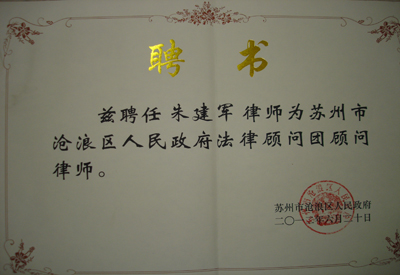 聘书
兹聘任 朱建军 律师为苏州市
沧浪区人民政府法律顾问团顾问
律师。
苏州市沧浪区人民政府